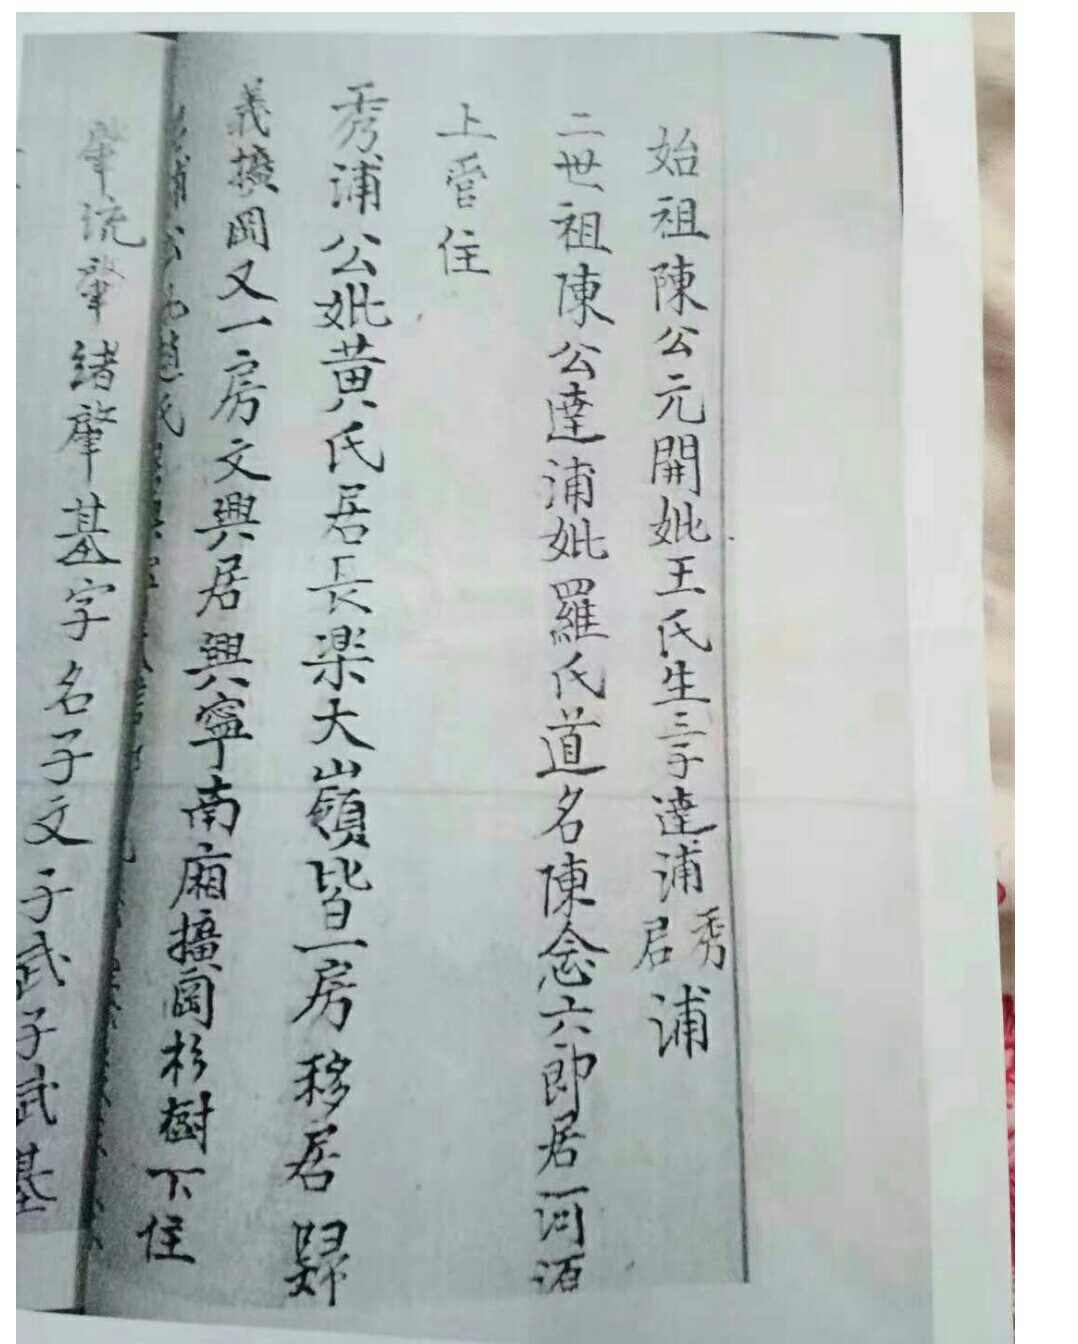 始祖陳公元開妣王氏生三子達浦秀君浦
二世祖陳公達浦妣羅氏道名陳念六郎居河源
上管住
秀浦公妣黄氏居長楽大嶺皆一房移居歸
義擴岡又一房文興居興寧南廂擴岡杉樹下住
浦公趙氏
肇流肇緒肇基字名子文子武子武基